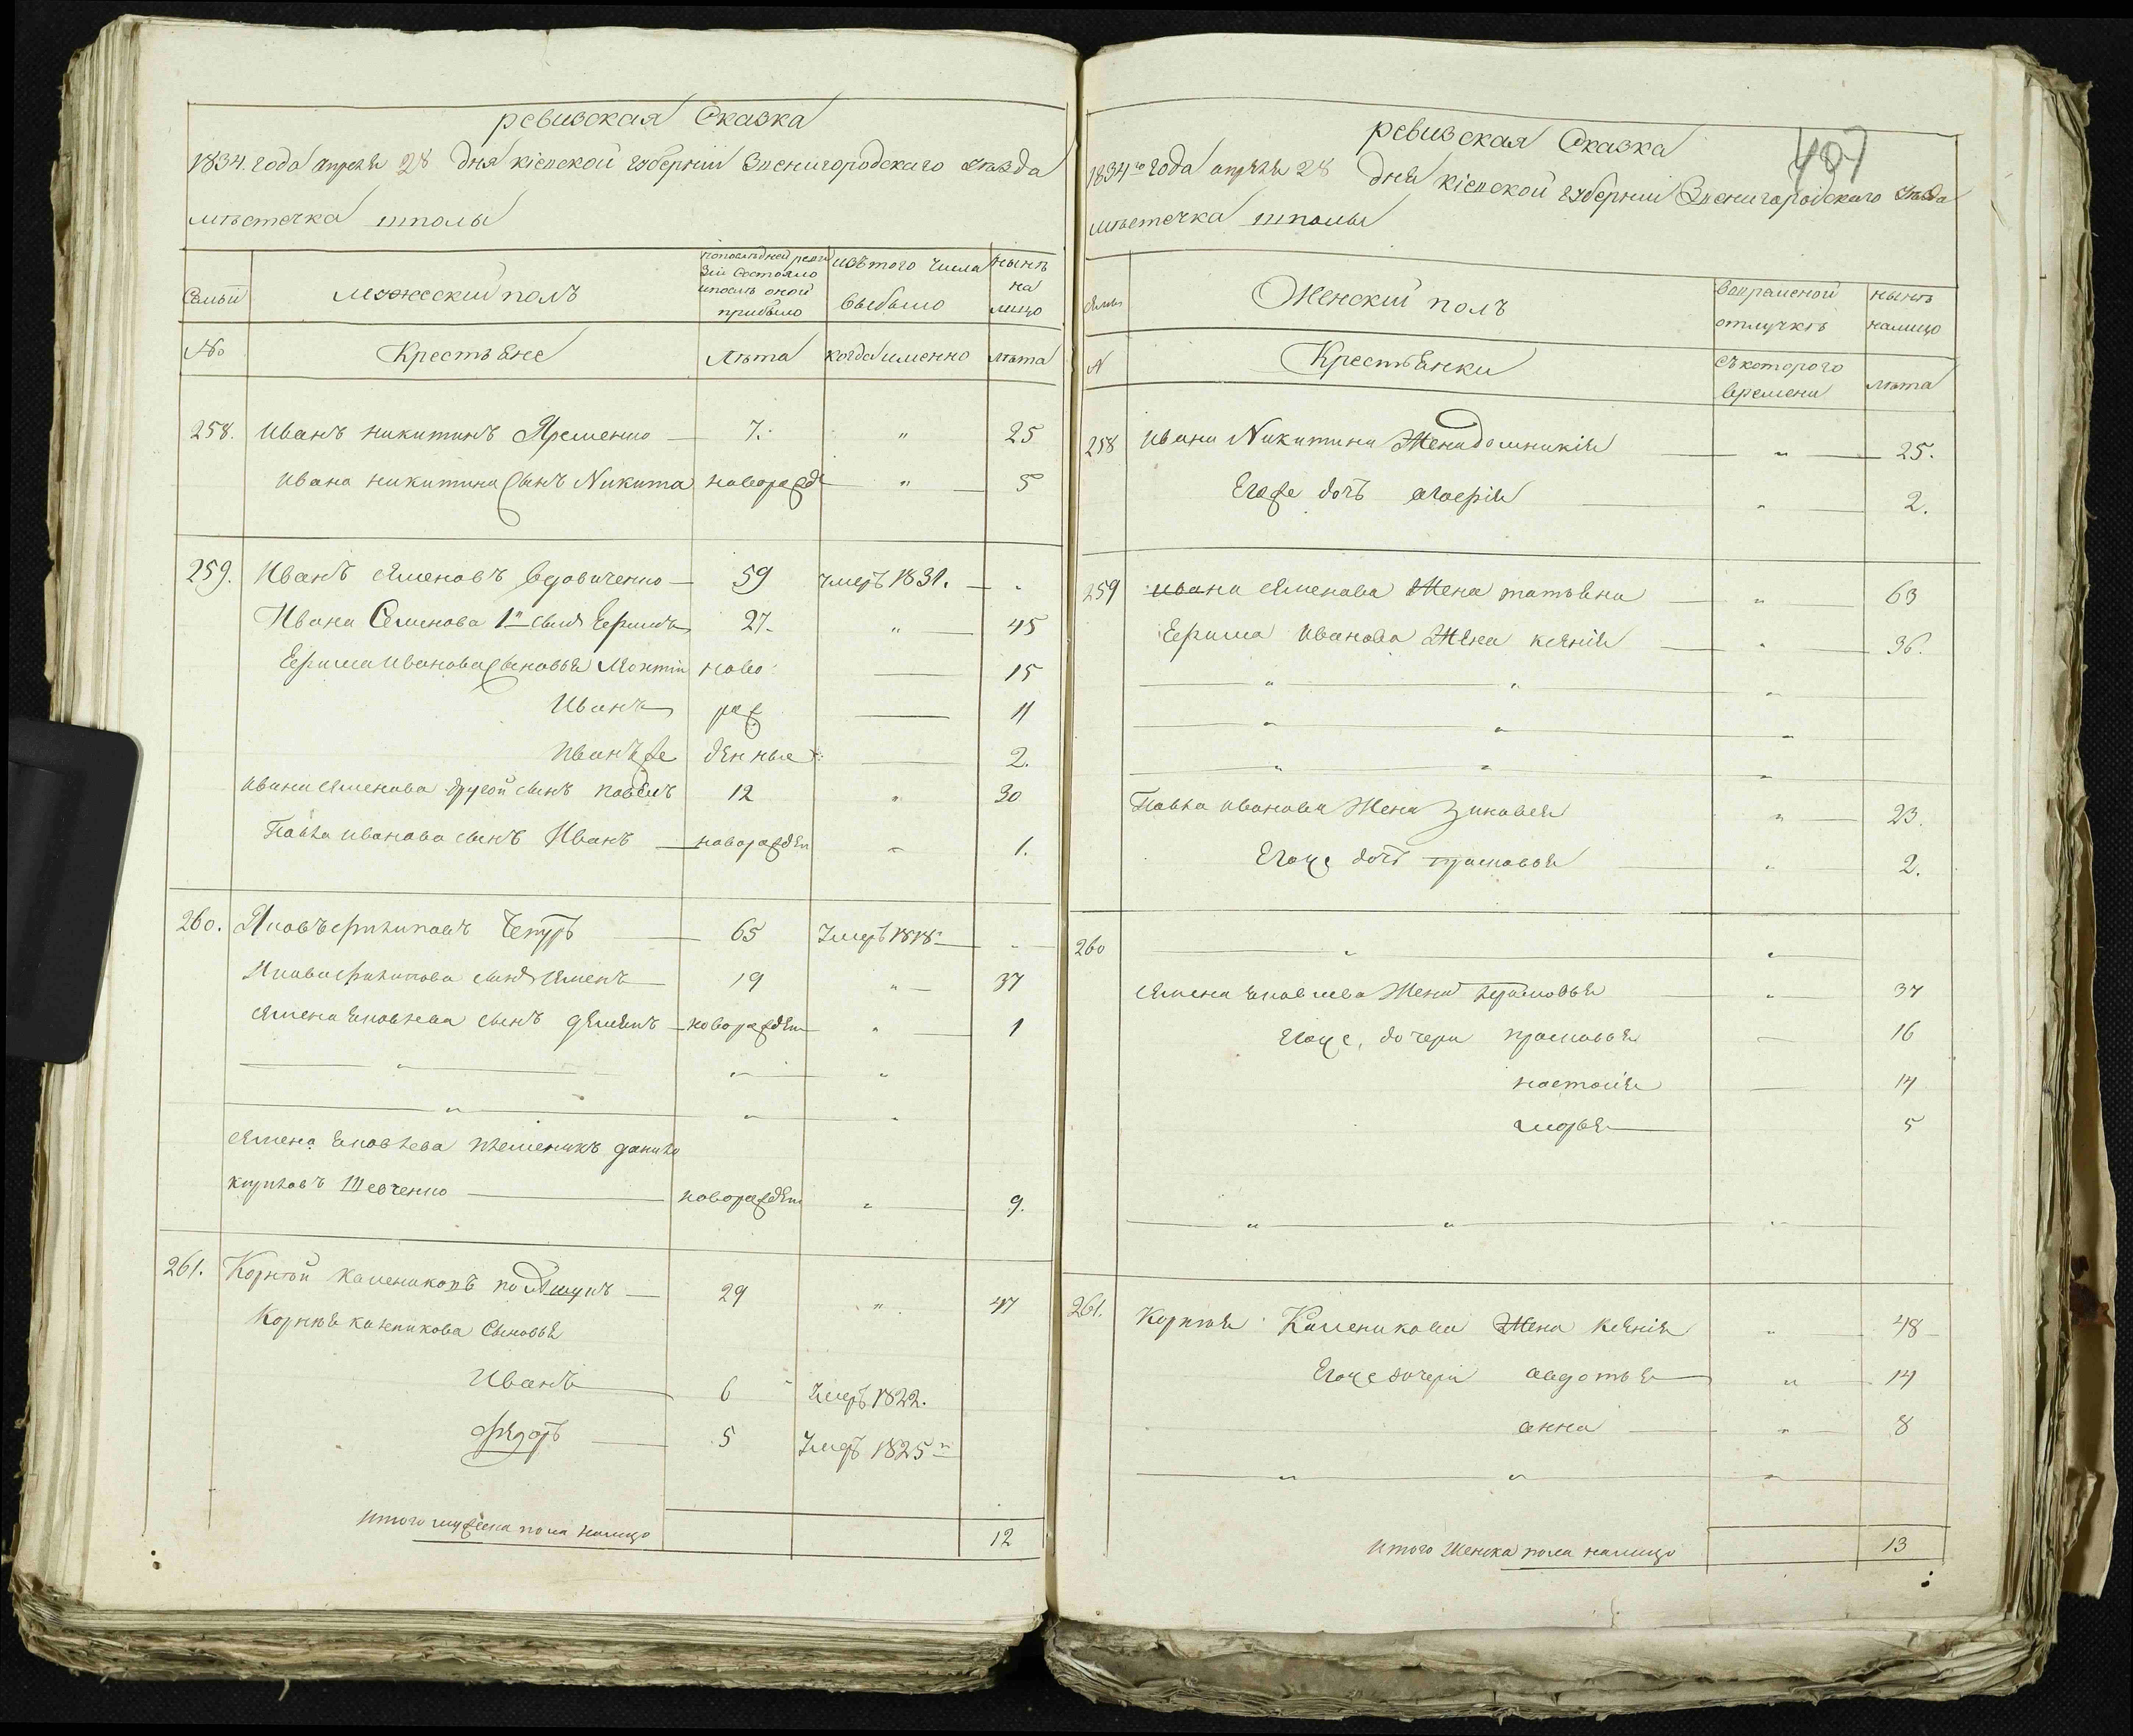 ревизская Сказка
1834. года апреля 28 дня кіевской губерніи Звенигородскаго уѣзда
мѣстечка шполы
Семьи
мужеский полъ
попослѣдней реви
зіи состояло
ипослѣ оной
прибыло
изъ того числа
выбыло
нынѣ
на
лицо
№
Крестьяне
лѣта
когда именно
лѣта
258. Иванъ никитинъ Яременко 7. " 25
Ивана никитина сынъ Никита новорожде " 5
259. Иванъ семеновъ вдовиченко 59 умеръ 1831.
Ивана Семенова 1й сынъ Ефримъ 27 " 45
Ефрима Иванова сыновья ново 15
Иванъ рож 11
Иванъ же денные 2.
Ивана семенова другой сынъ павелъ 12 " 30
Павла иванова сынъ Иванъ новорожден " 1.
260. Яковъ филиповъ Чепуръ 65 Умеръ 1818
Якова филипова сынъ семенъ 19 " 37
семена яковлева сынъ демянъ новорожден " 1
" " "
" " "
семена яковлева племеникъ данило
кириловъ Шевченко новорожден " 9.
261. Корнѣй калениковъ 29 " 47
Корнѣя каленикова Сыновья
Иванъ 6 Умеръ 1822.
федоръ 5 Умеръ 1825
Итого мужеска пола налицо 12
ревизская Сказка
407
1834го года апреля 28 дня кіевской губерніи Звенигородскаго уѣзда
мѣстечка шполы
семьи
Женскій полъ
вовременой
отлучкѣ
нынѣ
налицо
N
Крестьянки
съкоторого
времени
лѣта
258 Ивана Никитина Жена домникія " 25.
Его же дочь " 2.
259 Ивана семенова Жена татьяна " 63
Ефрима Иванова Жена ксенія " 36.
" " "
" " "
" " "
Павла иванова Жена Зиновея " 23.
Егоже дочь прасковья " 2.
260 " "
семена яковлева Жена прасковья " 37
Егоже, дочери прасковья 16
настасія 14
марья 5
" " "
261. Корнѣя Каленикова Жена ксенія " 48
Егоже дочери авдотья " 14
анна " 8
" " "
Итого Женска пола налицо 13